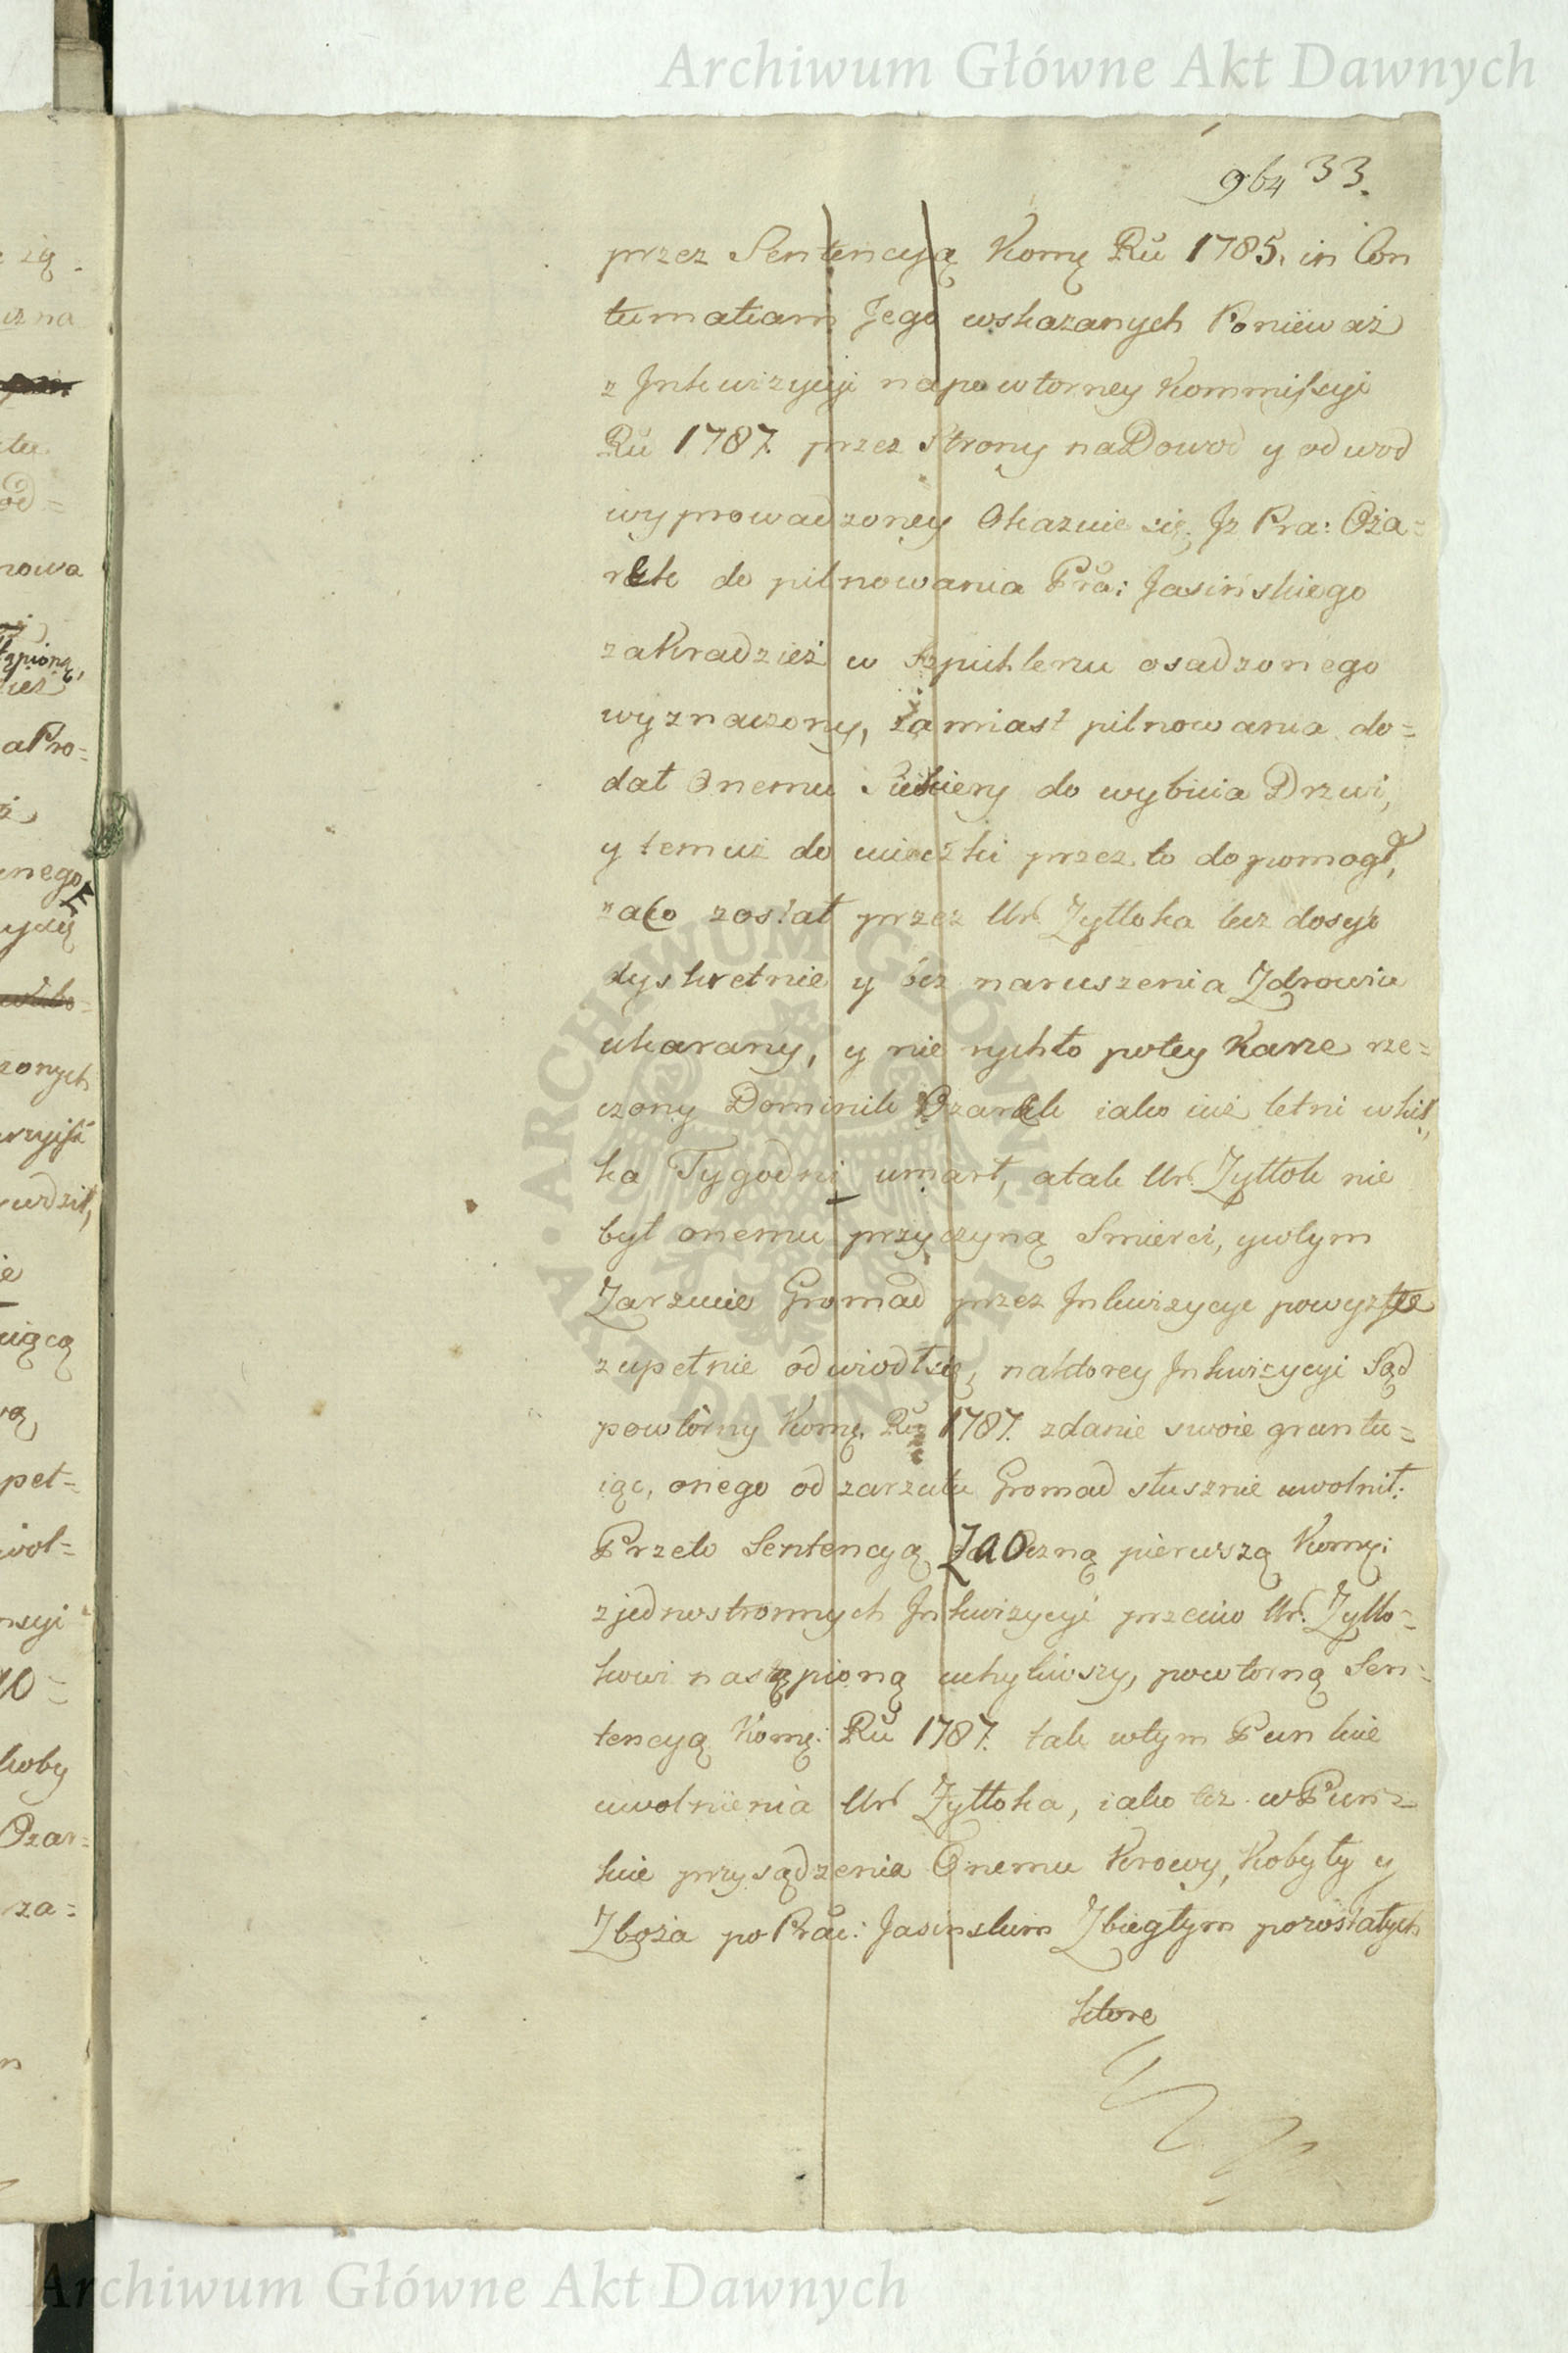 Archiwum Główne Akt Dawnych
964 33.
przez Sentencyją Komę Ru 1785. in Con
tumatiam Jego wskazanych Poniéważ
z Jnkwizycyi napowtorney Kommissyi
Ru 1787. przez Strony naDowod y odwod
wyprowadzoney Okazuie się, Jż Pra: Oża=
rek do pilnowania Pra: Jasińskiego
zaKradzież w Szpichlerzu osadzonego
wyznaczony, zamiast pilnowania do=
dał Onemu Siekiery do wybicia Drzwi,
y temuż do ucieczki przez to dopomogł,
zaco został przez Ur. Zyttoka lecz dosyć
dyskretnie y bez naruszenia Zdrowia
ukarany, y nie rychło potey Karze rze=
czony Dominik Ozarek iako iuż letni wkil,
ka Tygodni umarł, atak Ur. Zyttok nie
był onemu przyczyną Smierci, ywtym
Zarzucie Gromad przez Jnkwizycye powyzsze
zupełnie odwiodł się, naktorey Jnkwizycyi Sąd
powtórny Komę. Ru 1787. zdanie swoie gruntu=
iąc, onego od zarzutu Gromad słusznie uwolnił:
Przeto Sentencyą Zaoczną pierwszą Komę:
zjednostronnych Jnkwizycyi przeciw Ur. Zytto=
kowi nastąpioną uchyliwszy, powtorną Sen=
tencyą Komę: Ru 1787. tak wtym Punkcie
uwolnienia Ur Zyttoka, iako też wPunk=
cie przysądzenia Onemu Krowy, Kobyły y
Zboża po Prac: Jasinskim Zbiegłym pozostałych
ktore
ARCHIWUM GŁÓWNE AKT DAWNYCH
Archiwum Główne Akt Dawnych